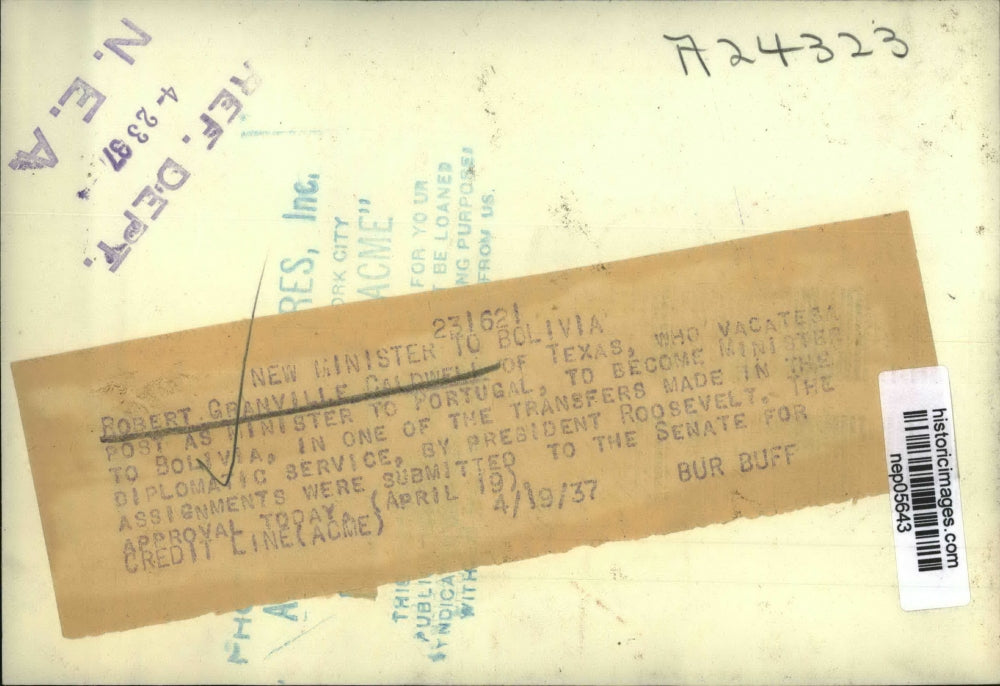 A24323
N. E. A
4-23 37
REF. DEPT.
RES, Inc.
ORK CITY
ACME"
FOR YOUR
T BE LOANED
NG PURPOSES
FROM US.
THIS
PUBLI
SYNDICA
WITH
231621
NEW MINISTER TO BOLIVIA
ROBERT GRANVILLE CALDWELL OF TEXAS, WHO VACATES A
POST AS MINISTER TO PORTUGAL, TO BECOME MINISTER
TO BOLIVIA, IN ONE OF THE TRANSFERS MADE IN THE
DIPLOMATIC SERVICE, BY PRESIDENT ROOSEVELT. THE
ASSIGNMENTS WERE SUBMITTED TO THE SENATE FOR
APPROVAL TODAY. (APRIL 19)
CREDIT LINE(ACME) 4/19/37 BUR BUFF
historicimages.com
nep05643